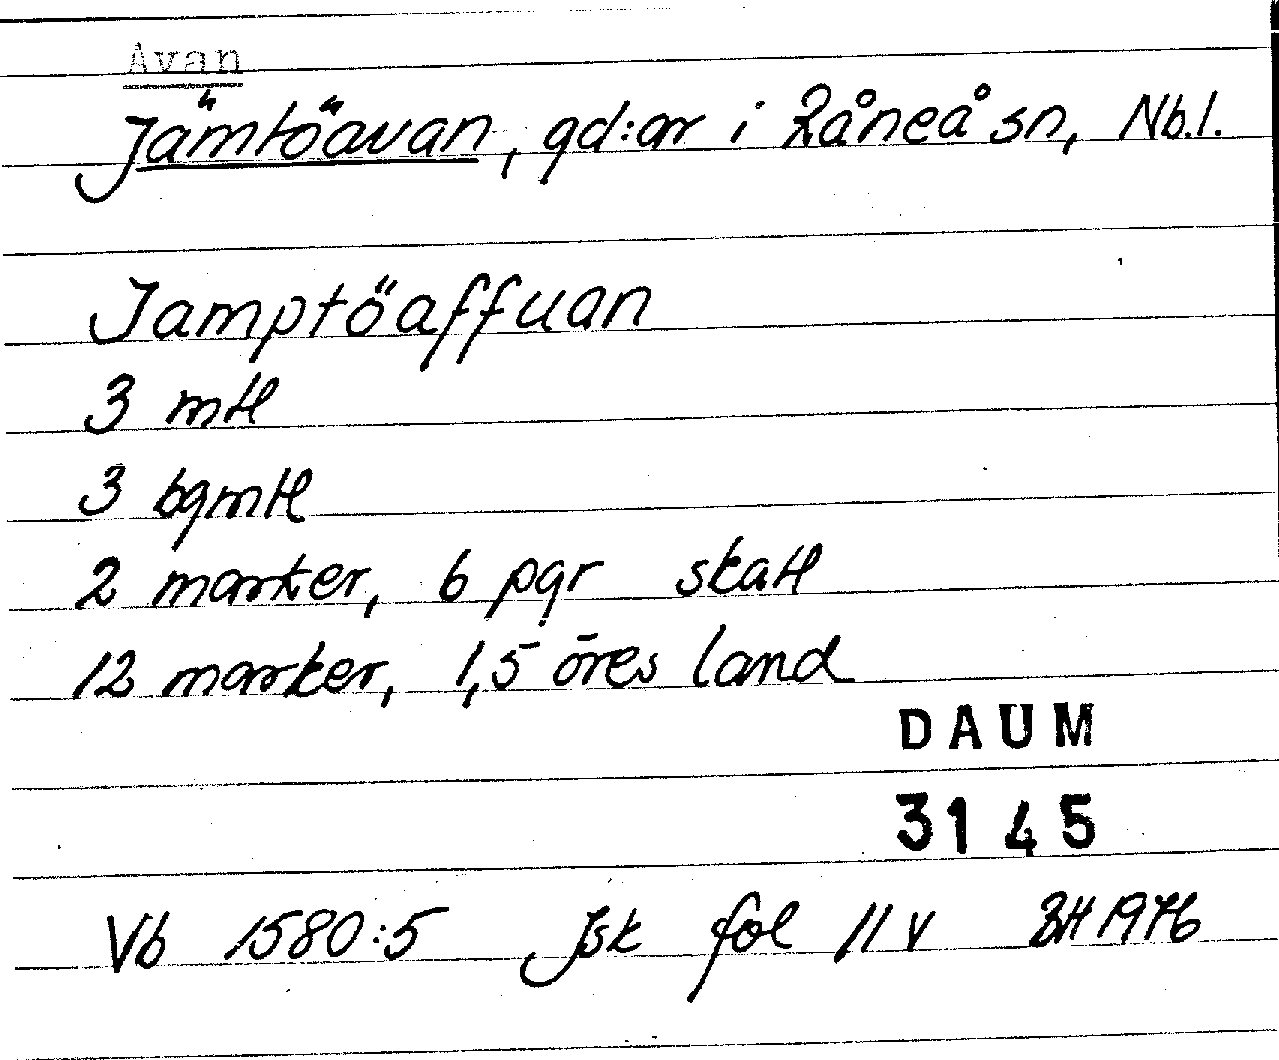 Avan
Jämtöavan, gd:ar i Råneå sn, Nb.l.
Jamptöaffuan
3 mtl
3 bgmtl
2 marker, 6 pgr skatt
12 marker, 1,5 öres land
DAUM
3145
Vb 1580:5 Jsk fol 11 v BH 1976